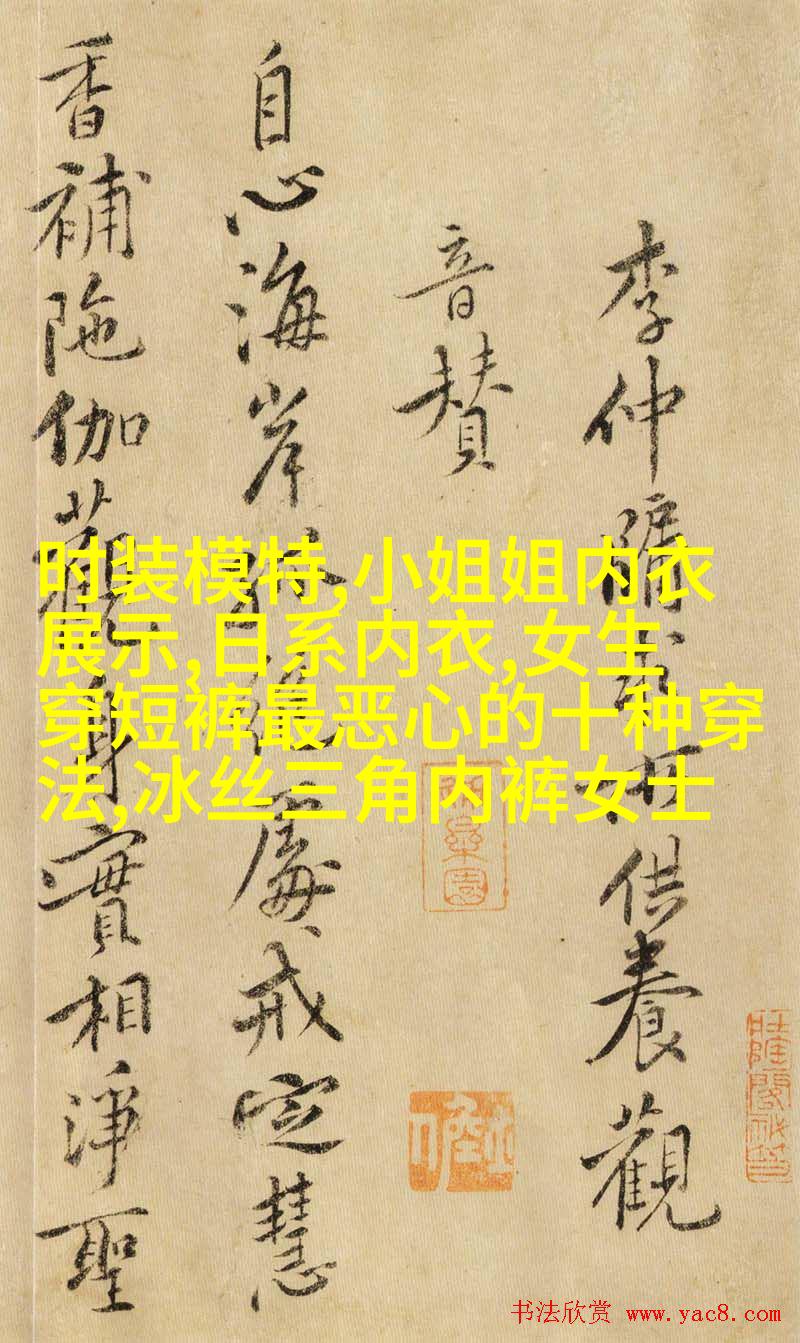 李仲牖家所供養觀
音赞
自心海岸孤絕處戒定慧
香補陁伽觀身實相淨聖
时装模特,小姐姐内衣
展示,日系内衣,女生
穿短裤最恶心的十种穿
法,冰丝三角内裤女士
书法欣赏 www.yac8.com